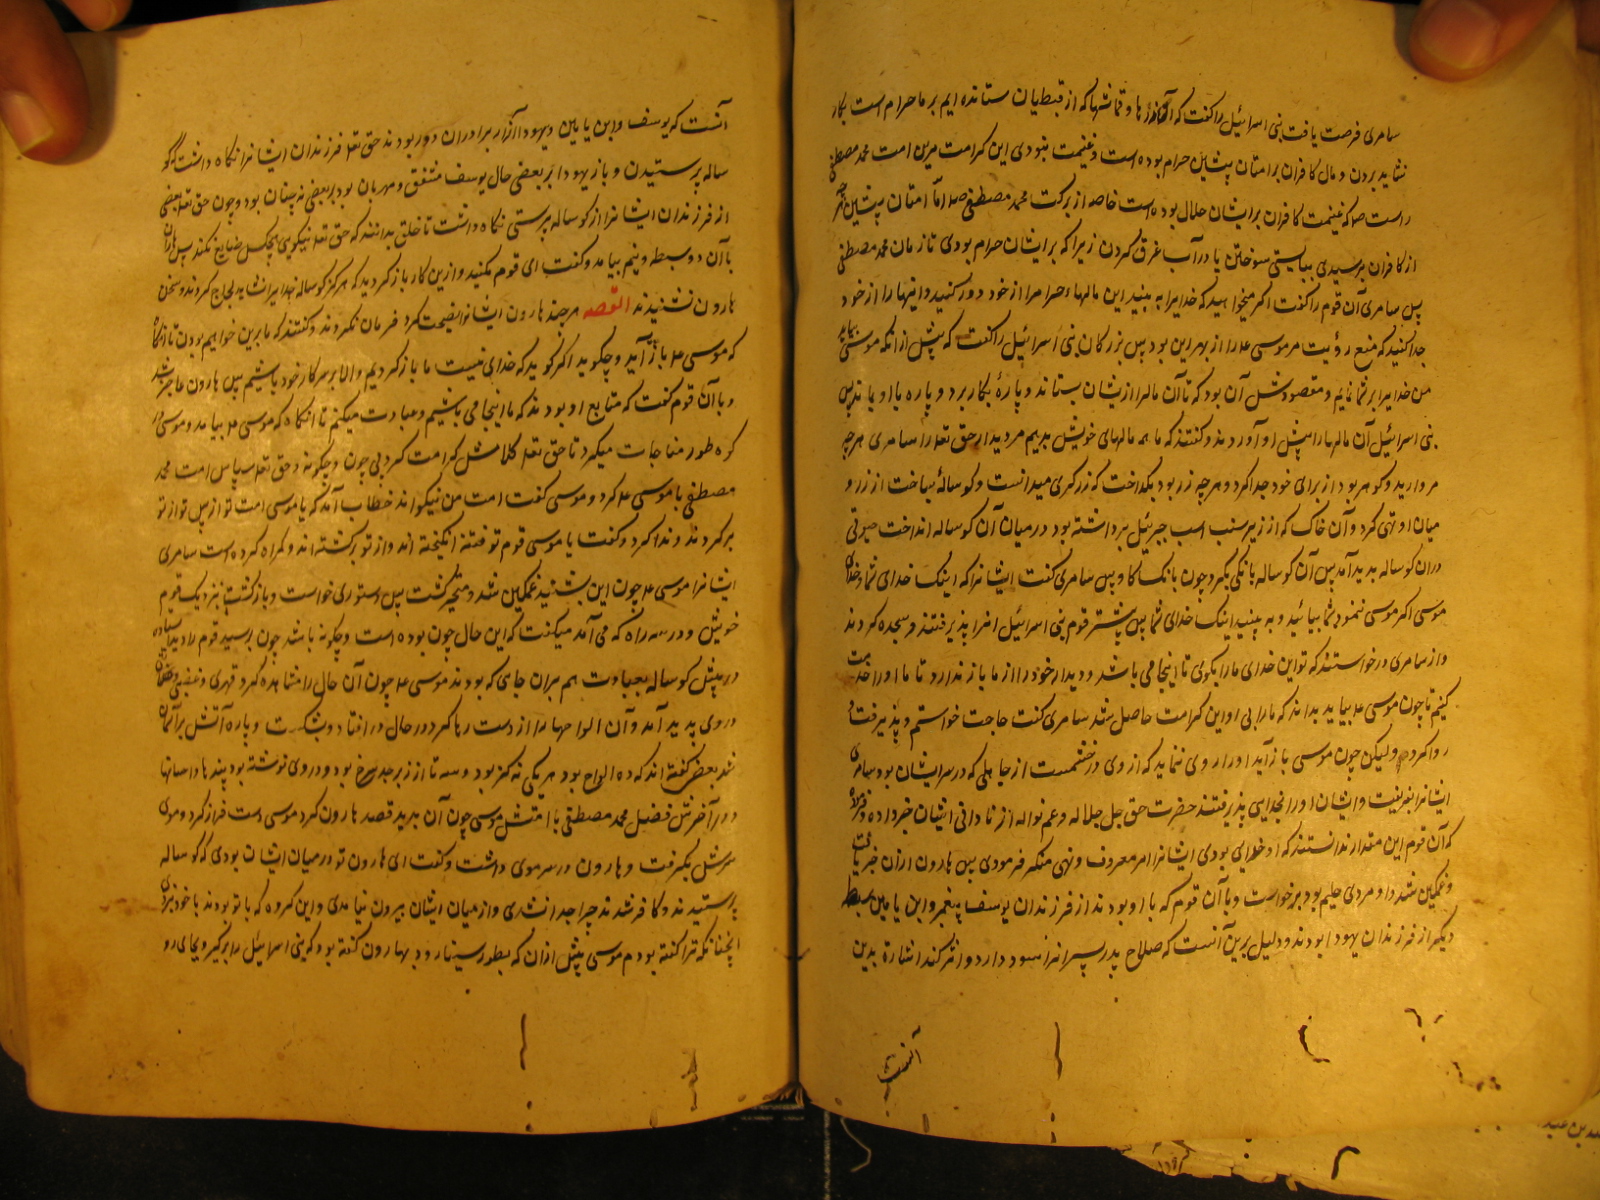 سامری فرصت یافت بنی اسرائیل را گفت که این زرها و قماشها که از قبطیان ستانده ایم بر ما حرام است بکار
نشاید بردن و مال کافران بر امتان پیشین حرام بوده است و غنیمت نبودی این کرامت مرین امت محمد مصطفی
راست صلعم که غنیمت کافران بر ایشان حلال بوده است خاصه از برکت محمد مصطفی صلعم اما امتان پیشین هرچه
از کافران برسیدی ببایستی سوختن یا در آب غرق کردن زیرا که بر ایشان حرام بودی تا زمان محمد مصطفی
پس سامری آن قوم را گفت اگر میخواهید که خدایرا به بینید این مالهاء حرامرا از خود دور کنید و اینها را از خود
جدا کنید که منع رؤیت مر موسی ع م را از بهر این بود پس بزرگان بنی اسرائیل را گفت که پیش از انکه موسی بیاید
من خدایرا بر شما نمایم و مقصودش آن بود که تا آن مالرا از یشان بستاند و پارهٔ بکار برد و پاره با او بماند پس
بنی اسرائیل آن مالها را پیش او آوردند و گفتند که ما همه مالهای خویش بدیم مر دیدار حق تعالی را سامری هرچه
مروارید و گوهر بود از برای خود جدا کرد و هرچه زر بود بگداخت که زرگری میدانست و گوسالهٔ ساخت از زر و
میان او تهی کرد و آن خاک که از زیر سنب اسپ جبرئیل برداشته بود در میان آن گوساله انداخت صوتی
دران گوساله پدید آمد پس آن گوساله بانگی بکرد چون بانگ گاو پس سامری گفت ایشانرا که اینک خدای شما و خدای
موسی اگر موسی ننمود شما بیائید و به بینید اینک خدای شما پس بیشتر قوم بنی اسرائیل انرا پذیرفتند و سجده کردند
و از سامری درخواستند که تو این خدای ما را بگوئی تا اینجا می باشد و دیدار خود را از ما باز ندارد تا ما او را خدمت
کنیم تا چون موسی ع م بیاید بداند که ما را بی او این کرامت حاصل شد سامری گفت حاجت خواستم و پذیرفت
روا کردم ولیکن چون موسی باز آید او را روی ننماید که از وی در خشمست از جاهلی که در سر ایشان بود سامری
ایشانرا بفریفت و ایشان او را بخدایی پذیرفتند حضرت حق جل جلاله و عم نواله از نادانی ایشان خبر داده و فرموده
که آن قوم این مقدار ندانستند که او خدایی بودی ایشانرا امر معروف و نهی منکر فرمودی پس هارون ازان خبر یافت
و غمگین شد و او مردی حلیم بود برخواست و با آن قوم که با او بودند از فرزندان یوسف پیغمبر و ابن یامین سبط
دیگر از فرزندان یهودا بودند و دلیل برین آنست که صلاح پدر پسرانرا سود دارد و اثر کند اشارة بدین
آنست
آنست که یوسف و ابن یامین و یهودا از آزار برادران دور بودند حق تعالی فرزندان ایشانرا نگاه داشت گو
ساله پرستیدن و باز یهودا بر بعضی حال یوسف متفق و مهربان بود بر بعضی نه چنان بود و چون حق تعالی بعضی
از فرزندان ایشانرا از گوساله پرستی نگاه داشت تا خلق بدانند که حق تعالی نیکویی هیچکس ضایع نکند پس هارون
با آن دو سبط و نیم بیامد و گفت ای قوم مکنید و ازین کار باز گردید که هرگز گوساله خدایرا نشاید لجاج کردند و سخن
هارون نشنیدند القصه هر چند هارون ایشانرا نصیحت کرد فرمان نکردند و گفتند که ما برین خواهیم بودن تا انگاه
که موسی ع م باز آید و چگوید اگر گوید که خدایی نیست ما باز گردیم و الا بر سر کار خود باشیم پس هارون عاجز شد
و با آن قوم گفت که متابع او بودند که ما اینجا می باشیم و عبادت میکنیم تا انگاه که موسی ع م بیامد و موسی در
کوه طور مناجات میکرد تا حق تعالی کلامش کرامت کرد بی چون و چگونه و حق تعالی سپاس امت محمد
مصطفی با موسی ع م کرد و موسی گفت امت من نیکواند خطاب آمد که یا موسی امت تو از پس تو از تو
برگردند و ندا کرد و گفت یا موسی قوم تو فتنه انگیخته اند و از تو برگشته اند و گمراه کرده است سامری
ایشانرا موسی ع م چون این بشنید غمگین شد و متحیر گشت پس دستوری خواست و باز گشت بنزدیک قوم
خویش و در سر راه که می آمد میگفت که این حال چون بوده است و چگونه باشد چون برسید قوم را دید ایستاده
در پیش گوساله بعبادت هم بران جای که بودند موسی ع م چون آن حال را مشاهده کرد قهری و غضبی
در وی پدید آمد و آن الواحها را از دست رها کرد در حال در افتاد و بشکست و پاره آتش بر آسمان
شد بعضی گفته اند که ده الواح بود هر یکی نه گز بود و سه تا از زبرجد سرخ بود و در وی نوشته بود پندها و امثالها
و در آخرش فضل محمد مصطفی با امتش موسی چون آن بدید قصد هارون کرد موسی دست فراز کرد و موی
سرش بگرفت و هارون در سر موی داشت و گفت ای هارون تو در میان ایشان بودی که گوساله
پرستیدند و کافر شدند چرا جدا نشدی و از میان ایشان بیرون نیامدی و این گروه که با تو بودند با خود نبردی
انچنانکه ترا گفته بودم موسی پیش ازان که بطور سینا رود بهارون گفته بود که بنی اسرائیل را برگیر و بجای رو